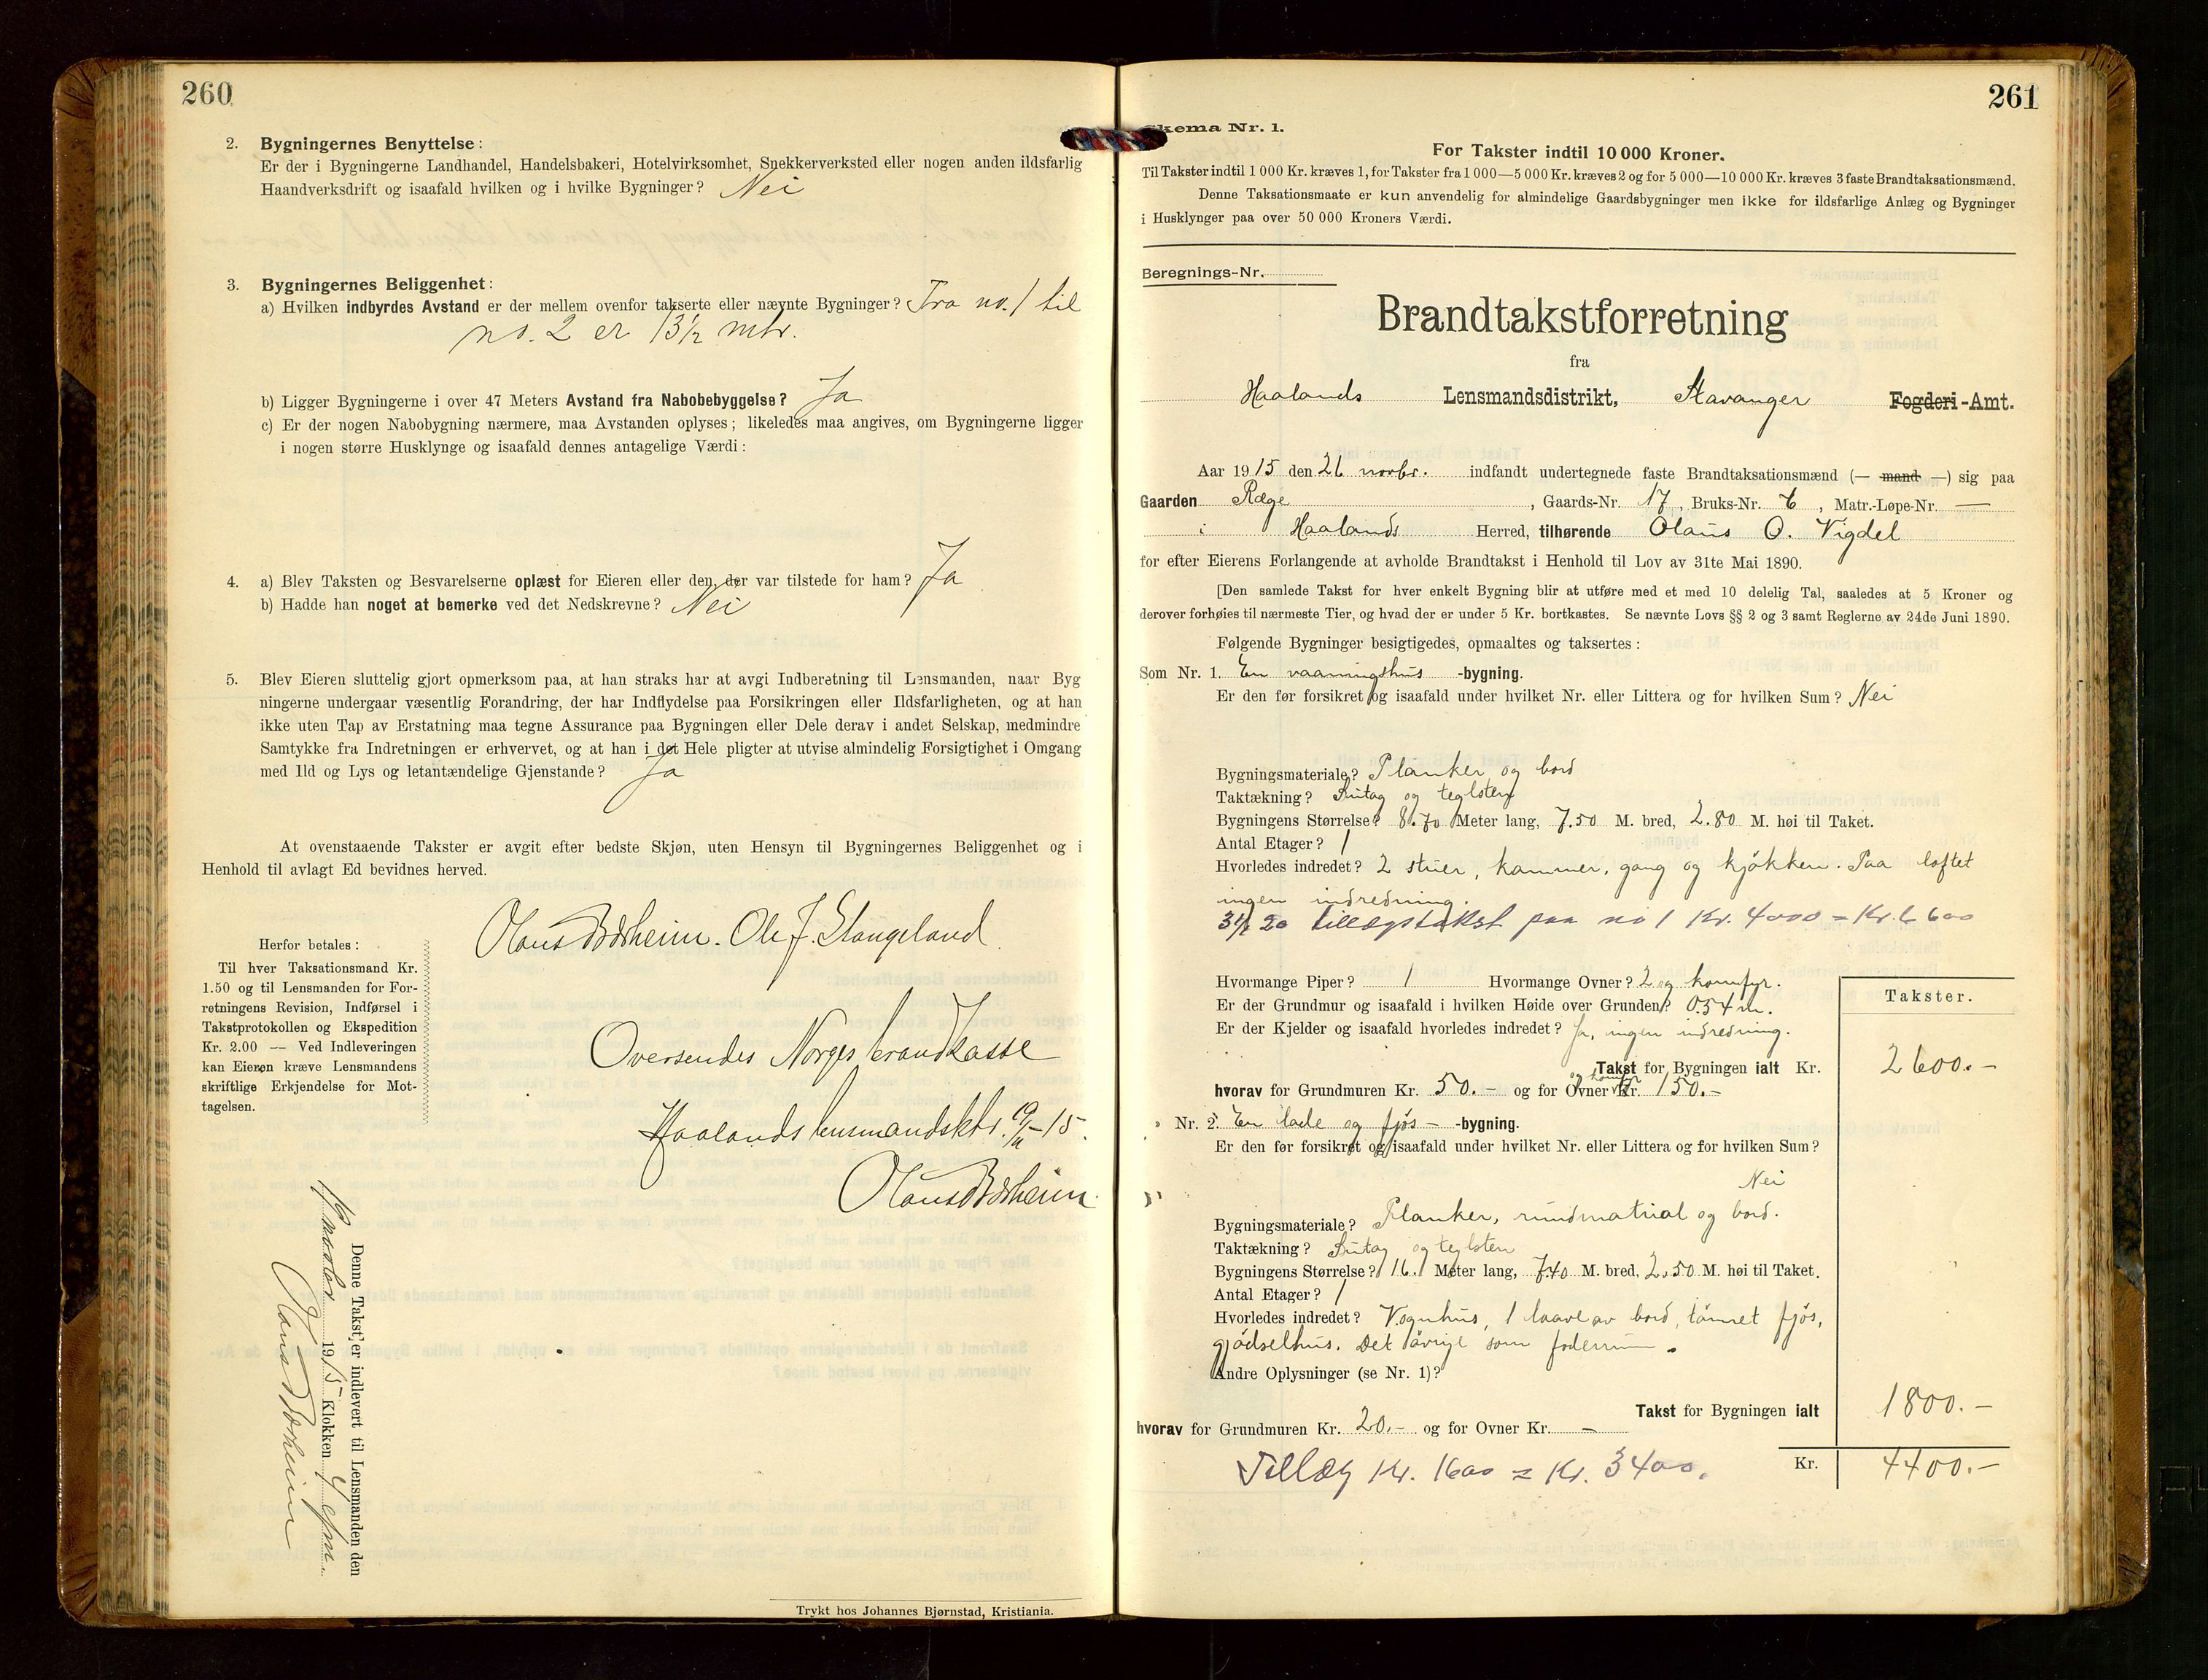 260
2. Bygningernes Benyttelse:
Er der i Bygningerne Landhandel, Handelsbakeri, Hotelvirksomhet, Snekkerverksted eller nogen anden ildsfarlig
Haandverksdrift og isaafald hvilken og i hvilke Bygninger? Nei
3. Bygningernes Beliggenhet:
a) Hvilken indbyrdes Avstand er der mellem ovenfor takserte eller nævnte Bygninger? Fra no. 1 til
no. 2 er 13 1/2 mtr.
b) Ligger Bygningerne i over 47 Meters Avstand fra Nabobebyggelse? Ja
c) Er der nogen Nabobygning nærmere, maa Avstanden oplyses; likeledes maa angives, om Bygningerne ligger
i nogen større Husklynge og isaafald dennes antagelige Værdi:
4. a) Blev Taksten og Besvarelserne oplæst for Eieren eller den, der var tilstede for ham? Ja
b) Hadde han noget at bemerke ved det Nedskrevne? Nei
5. Blev Eieren sluttelig gjort opmerksom paa, at han straks har at avgi Indberetning til Lensmanden, naar Byg
ningerne undergaar væsentlig Forandring, der har Indflydelse paa Forsikringen eller Ildsfarligheten, og at han
ikke uten Tap av Erstatning maa tegne Assurance paa Bygningen eller Dele derav i andet Selskap, medmindre
Samtykke fra Indretningen er erhvervet, og at han i det Hele pligter at utvise almindelig Forsigtighet i Omgang
med Ild og Lys og letantændelige Gjenstande? Ja
At ovenstaaende Takster er avgit efter bedste Skjøn, uten Hensyn til Bygningernes Beliggenhet og i
Henhold til avlagt Ed bevidnes herved.
Olaus Bærheim. Ole J. Stangeland.
Herfor betales:
Til hver Taksationsmand Kr.
1.50 og til Lensmanden for For-
retningens Revision, Indførsel i
Takstprotokollen og Ekspedition
Kr. 2.00 — Ved Indleveringen
kan Eieren kræve Lensmandens
skriftlige Erkjendelse for Mot-
tagelsen.
Oversendes Norges brandkasse
Haalands lensmandsktr. 19/11-15.
Olaus Bærheim.
Denne Takst er indlevert til Lensmanden den
19 novbr 1915 Klokken 4 efm.
Olaus Bærheim
Trykt hos Johannes Bjørnstad, Kristiania.
261
Skema Nr. 1.
For Takster indtil 10 000 Kroner.
Til Takster indtil 1 000 Kr. kræves 1, for Takster fra 1 000—5 000 Kr. kræves 2 og for 5 000—10 000 Kr. kræves 3 faste Brandtaksationsmænd.
Denne Taksationsmaate er kun anvendelig for almindelige Gaardsbygninger men ikke for ildsfarlige Anlæg og Bygninger
i Husklynger paa over 50 000 Kroners Værdi.
Beregnings-Nr.
Brandtakstforretning
fra
Haalands Lensmandsdistrikt, Stavanger Fogderi-Amt.
Aar 1915 den 26 novbr. indfandt undertegnede faste Brandtaksationsmænd (— mand —) sig paa
Gaarden Ræge, Gaards-Nr. 17, Bruks-Nr. 6, Matr.-Løpe-Nr. —
i Haalands Herred, tilhørende Olaus O. Vigdel
for efter Eierens Forlangende at avholde Brandtakst i Henhold til Lov av 31te Mai 1890.
[Den samlede Takst for hver enkelt Bygning blir at utføre med et med 10 delelig Tal, saaledes at 5 Kroner og
derover forhøies til nærmeste Tier, og hvad der er under 5 Kr. bortkastes. Se nævnte Lovs §§ 2 og 3 samt Reglerne av 24de Juni 1890.
Følgende Bygninger besigtigedes, opmaaltes og taksertes:
Som Nr. 1. En vaaningshus -bygning.
Er den før forsikret og isaafald under hvilket Nr. eller Littera og for hvilken Sum? Nei
Bygningsmateriale? Planker og bord
Taktækning? Sutag og teglsten
Bygningens Størrelse? 8.70 Meter lang, 7.50 M. bred, 2.80 M. høi til Taket.
Antal Etager? 1
Hvorledes indredet? 2 stuer, kammer, gang og kjøkken. Paa loftet
ingen indredning.
20 tillægstakst paa no 1 Kr. 4000 = Kr. 6600
Hvormange Piper? 1 Hvormange Ovner? 2 og komfyr.
Er der Grundmur og isaafald i hvilken Høide over Grunden? 0.54 m.
Er der Kjelder og isaafald hvorledes indredet? Ja, ingen indredning.
Takster.
Takst for Bygningen ialt Kr. 2600.-
hvorav for Grundmuren Kr. 50.- og for Ovner og komfyr Kr. 150.-
Nr. 2. En lade og fjøs - -bygning.
Er den før forsikret og isaafald under hvilket Nr. eller Littera og for hvilken Sum?
Nei
Bygningsmateriale? Planker, rundmatrial og bord.
Taktækning? Sutag og teglsten
Bygningens Størrelse? 16.1 Meter lang, 7.40 M. bred, 2.50 M. høi til Taket.
Antal Etager? 1
Hvorledes indredet? Vognhus, 1 laave av bord, tømret fjøs,
gjødselhus. Det øvrige som foderrum.
Andre Oplysninger (se Nr. 1)?
Takst for Bygningen ialt 1800.-
hvorav for Grundmuren Kr. 20.- og for Ovner Kr. -
Kr. 4400.-
Tillæg Kr. 1600 = Kr. 3400.